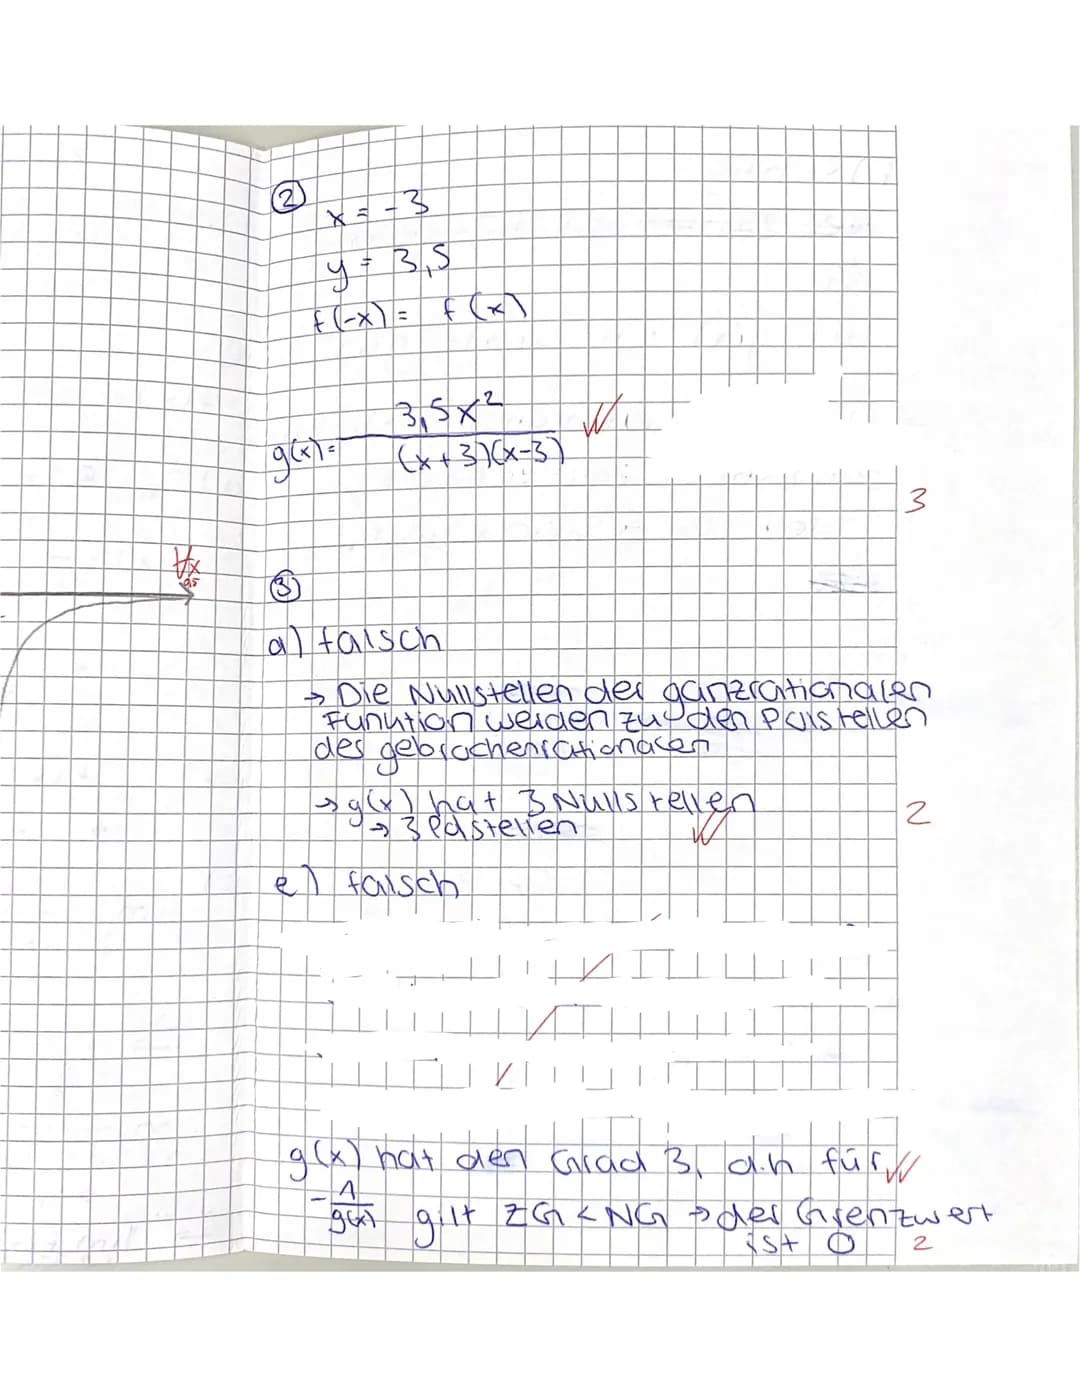 ②
x = -3
y = 3,5
f(-x) = f(x)
g(x) = 3,5x² / (x+3)(x-3)
3
x
0,5
③
a) falsch
→ Die Nullstellen der ganzrationalen
Funktion werden zu den Polstellen
des gebrochenrationalen
→ g(x) hat 3 Nullstellen
→ 3 Polstellen
2
e) falsch
g(x) hat den Grad 3, d.h für
- 1/g(x) gilt ZG < NG → der Grenzwert
ist 0
2